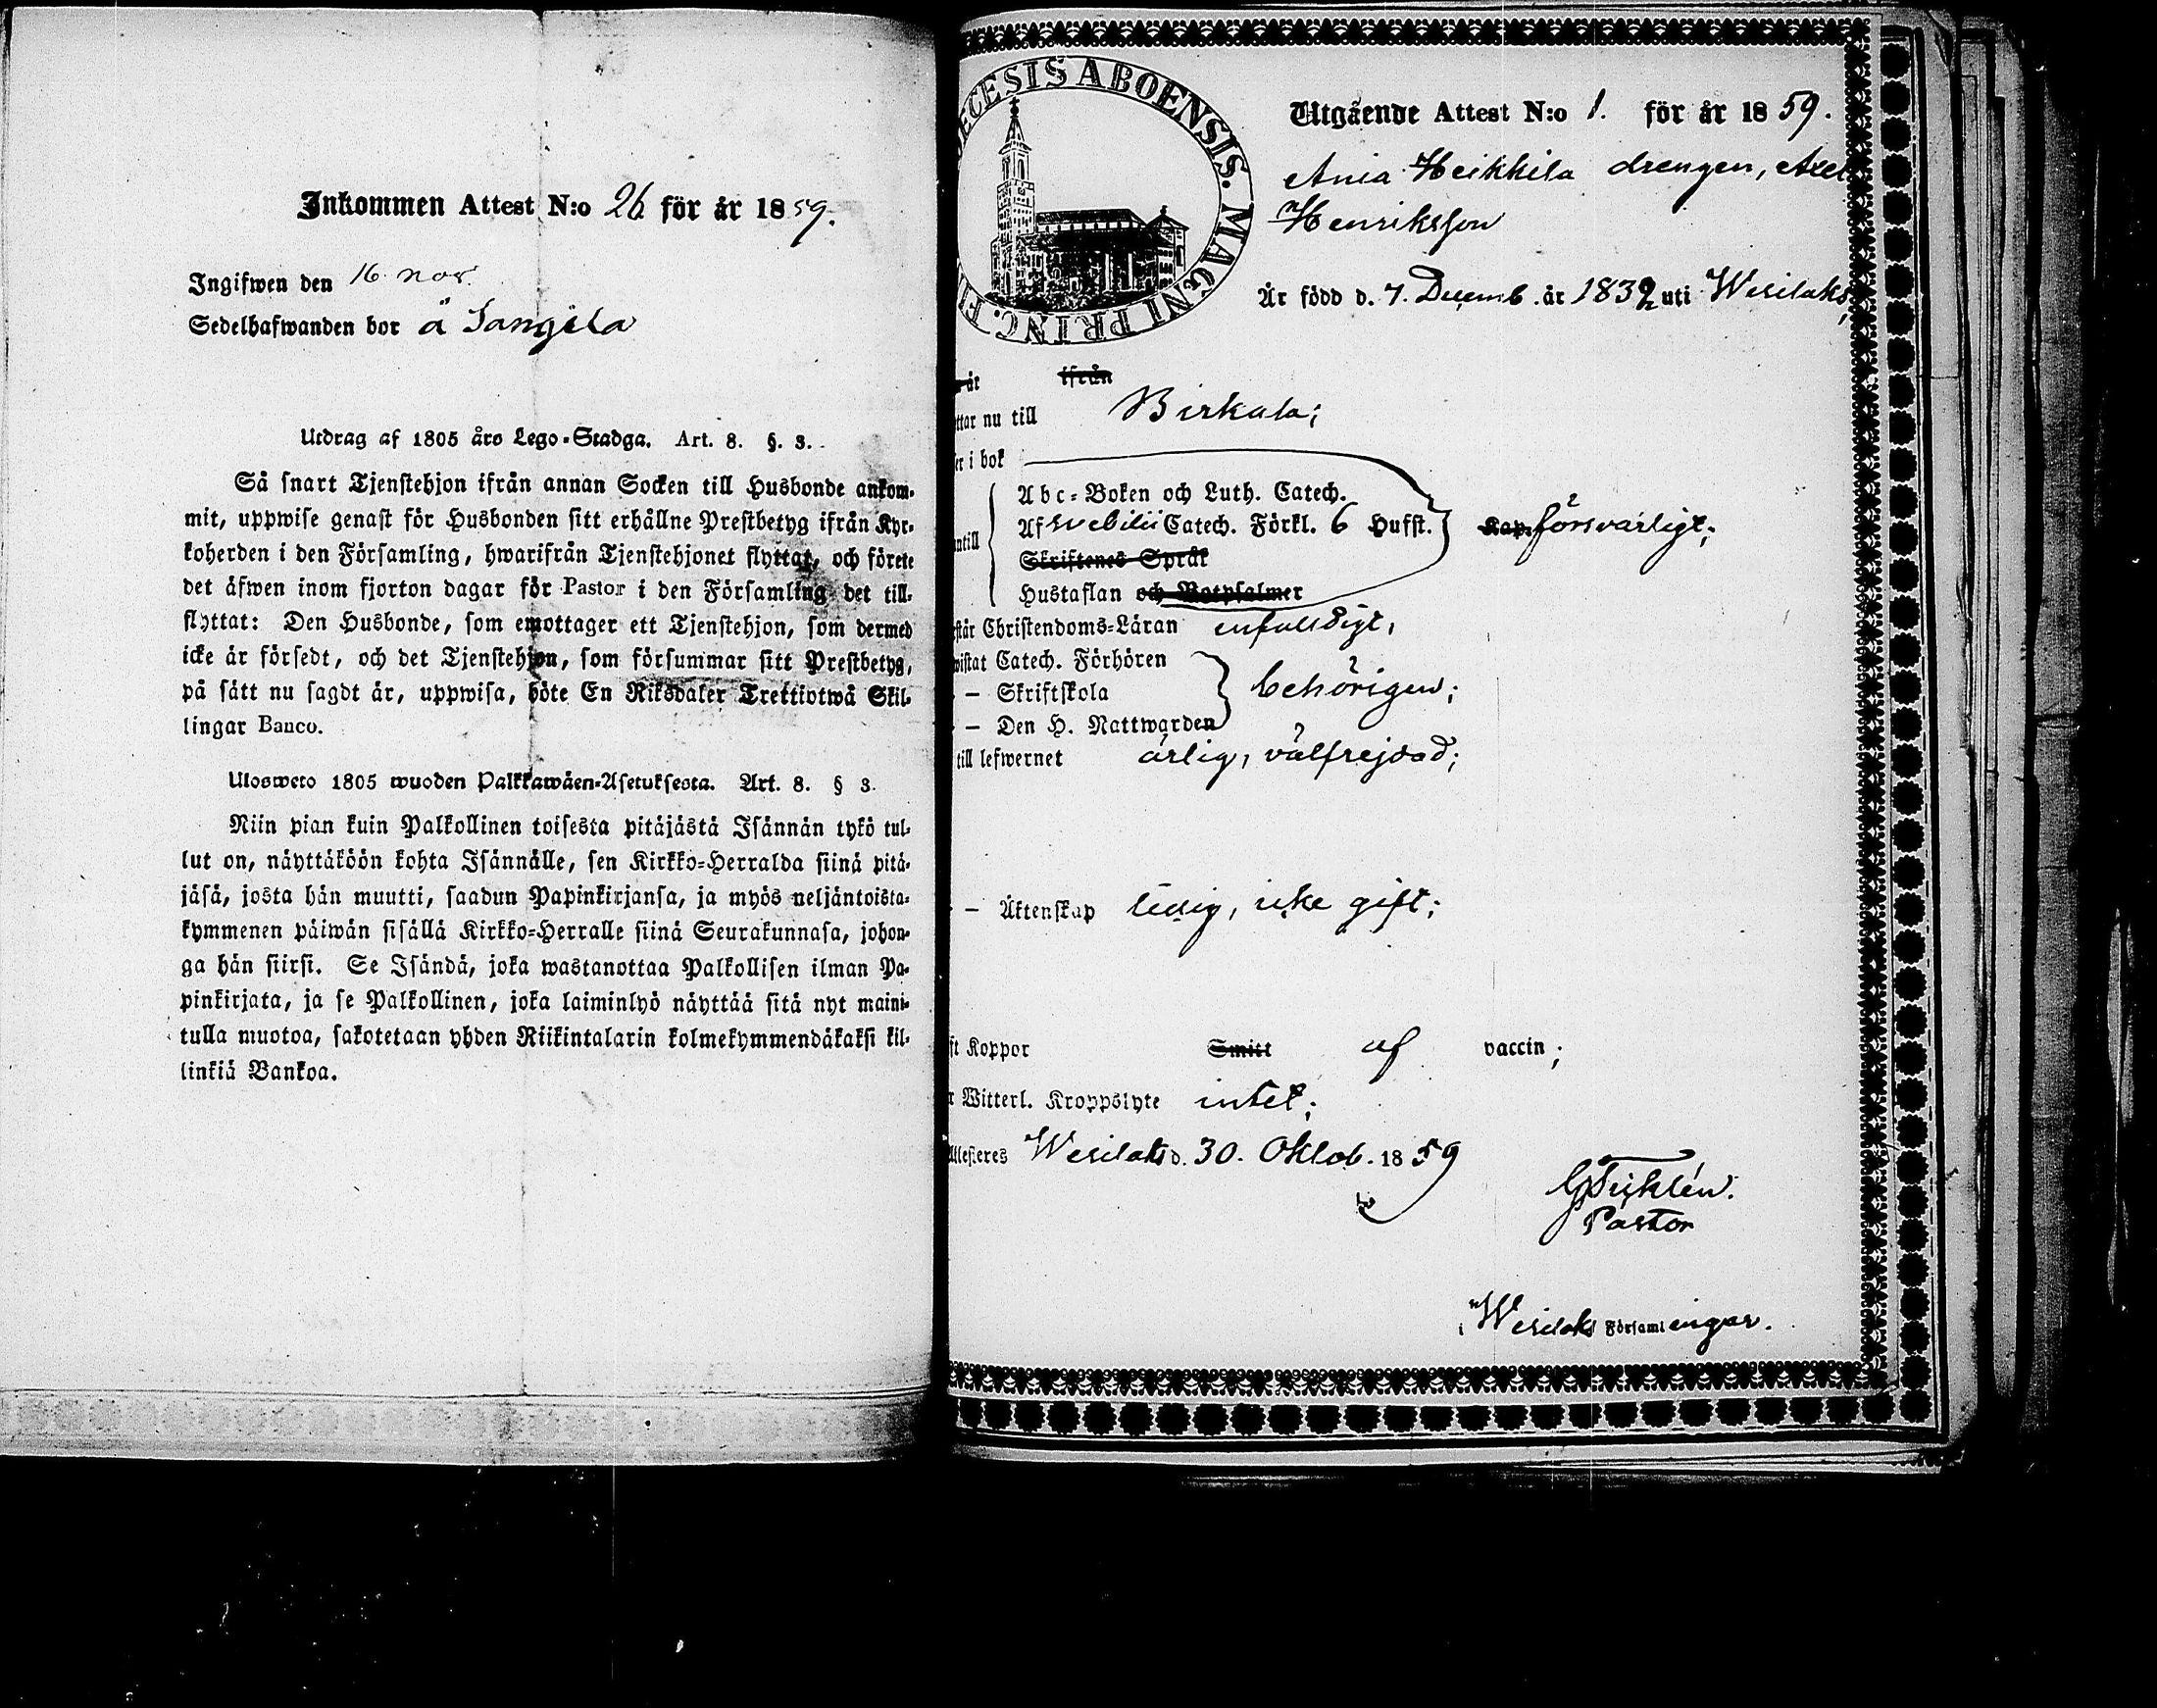 Inkommen Attest N:o 26 för år 1859.
Ingifwen den 16 nov.
Sedelhafwanden bor å Sangila
Utdrag af 1805 års Lego-Stadga. Art. 8. §. 3.
Så snart Tjenstehjon ifrån annan Socken till Husbonde ankom-
mit, uppwise genast för Husbonden sitt erhållne Prestbetyg ifrån Kyr-
koherden i den Församling, hwarifrån Tjenstehjonet flyttat, och förete
det äfwen inom fjorton dagar för Pastor i den Församling det till-
flyttat: Den Husbonde, som emottager ett Tjenstehjon, som dermed
icke är försedt, och det Tjenstehjon, som försummar sitt Prestbetyg,
på sätt nu sagdt är, uppwisa, böte En Riksdaler Trettiotwå Skil-
lingar Banco.
Ulosweto 1805 wuoden Palkkawäen-Asetuksesta. Art. 8. § 3.
Niin pian kuin Palkollinen toisesta pitäjästä Isännän tykö tul-
lut on, näyttäköön kohta Isännälle, sen Kirkko-Herralda siinä pitä-
jäsä, josta hän muutti, saadun Papinkirjansa, ja myös neljäntoista-
kymmenen päiwän sisällä Kirkko-Herralle siinä Seurakunnasa, johon-
ga hän siirsi. Se Isändä, joka wastanottaa Palkollisen ilman Pa-
pinkirjata, ja se Palkollinen, joka laiminlyö näyttää sitä nyt maini-
tulla muotoa, sakotetaan yhden Riikintalarin kolmekymmendäkaksi kil-
linkiä Bankoa.
ECESIS ABOENSIS. MAGNI PRINC. F
Utgående Attest N:o 1. för år 1859.
Ania Heikkila drengen, Axel
Henriksson
Är född d. 7. Decemb. år 1832 uti Wesilaks,
år ifrån
ttar nu till Birkala;
er i bok
Abc-Boken och Luth. Catech.
Af Svebilii Catech. Förkl. 6 Hufst. Kap. försvarligt;
ntill
Skriftenes Språk
Hustaflan och Botpsalmer
står Christendoms-Läran enfaldigt,
wistat Catech. Förhören
— Skriftskola behörigen;
— Den H. Nattwarden
till lefwernet ärlig, välfrejdad;
— Äktenskap ledig, icke gift;
ft Koppor Smitt af vaccin;
r Witterl. Kroppslyte intet;
Attesteres Wesilaks d. 30. Oktob. 1859
Pastor
i Wesilaks Församlingar.